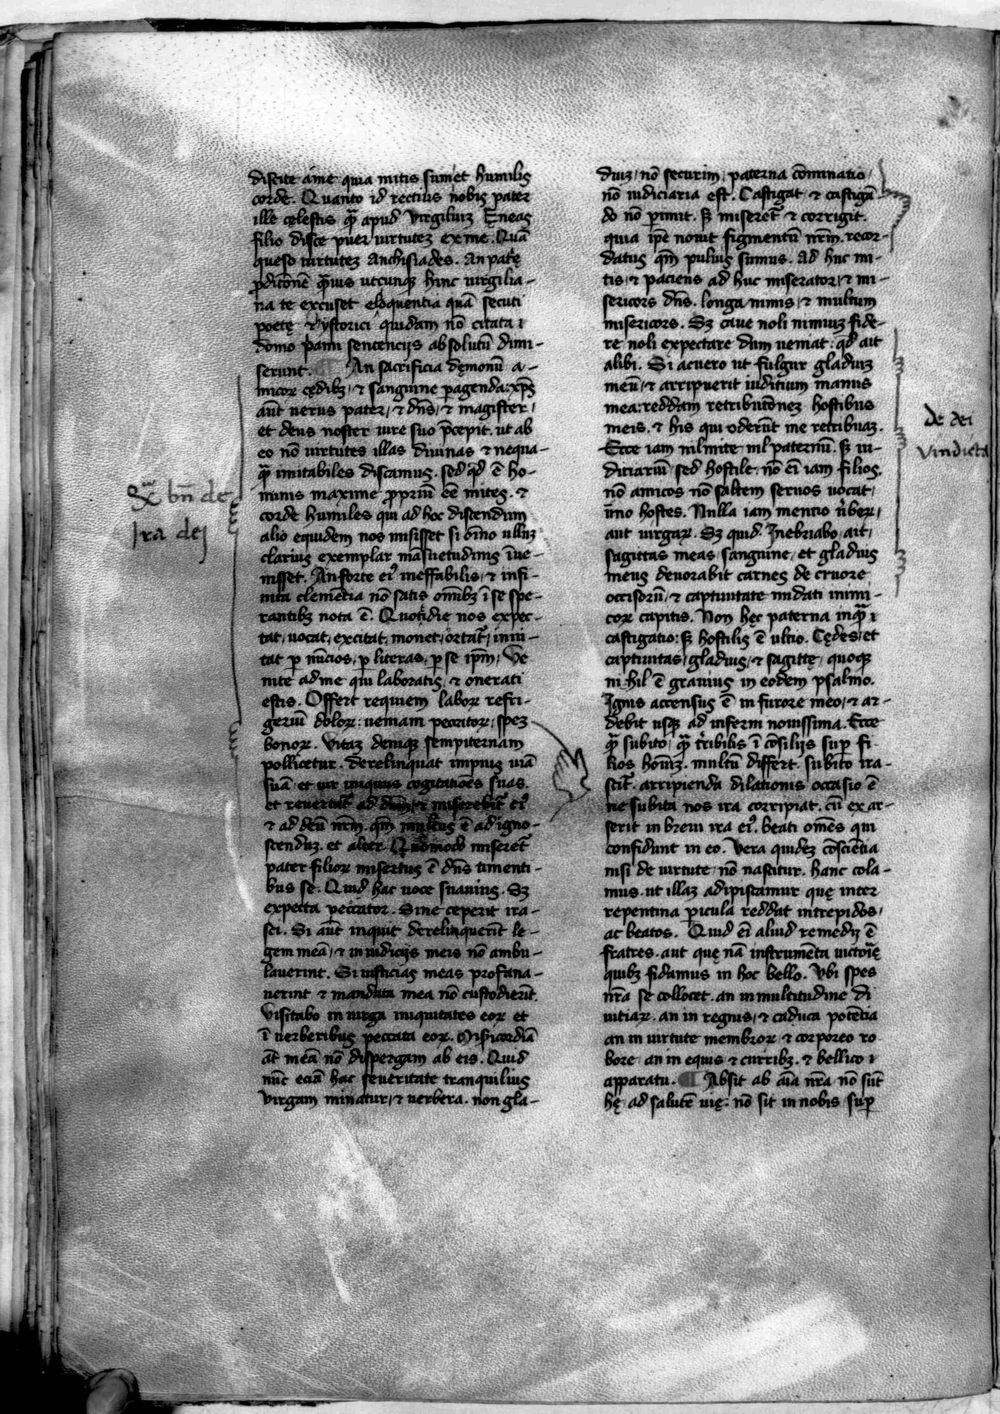 discite a me quia mitis sum et humilis
corde. Quanto id rectius nobis pater
ille celestis q̄ apud virgiliuz Eneas
filio disce puer virtutez ex me. Quā
queso virtutez Anchisiades. An patrie
ꝓditionē q̄uis utcunqꝫ hinc virgilia-
na te excuset eloquentia quā secuti
poetę & ystorici quidam nō citata i
domo sentencijs absolutū dimi-
serunt. An sacrificia dęmonū a-
micor cędibꝫ & sanguine pagenda: xp̄s
aūt verus pater, & dn̄s, & magister,
et deus noster iure suo p̄cepit. ut ab
eo nō virtutes illas divinas & nequa-
q̄ imitabiles discamus. sed qd̓ ē ho-
minis maxime ꝓpriū eē mites. &
corde humiles qui ad hoc discendum
alio equidem nos misisset si oīno ullūz
clarius exemplar māsuetudinis īve-
nisset. An forte ei᾽ ineffabilis, & infi-
nita clemētia nō satis omībꝫ ī se spe-
rantibꝫ nota ē. Quotidie nos expec-
tat, uocat, excitat, monet, ortat᷑, invi-
tat p nūcios, p literas, p se ipm̄, Ve-
nite ad me qui laboratis, & onerati
estis. Offert requiem labor refri-
geriū dolor: veniam peccator, spez
bonor. Vitaz deniqꝫ sempiternam
pollicetur. derelinquat impius viā
suā, et vir iniquus cogitationes suas.
et revertat᷑ ad dn̄m & miserebit᷑ ei᾽
& ad deū nr̄m. qm̄ multus ē ad igno-
scenduz. et alter Quomodo miseret᷑
pater filior misertus ē dn̄s timenti-
bus se. Quid hac voce suavius. Sz
expecta peccator. Sine ceperit ira-
sci. Si aūt inquit derelinquerīt le-
gem meā, & in iudicijs meis nō ambu-
laverint. Si iusticias meas profana-
uerint & mandata mea nō custodierīt.
Visitabo in virga iniquitates eor et
ī verberibus peccata eor. Misericordiā
aūt meā nō dispergam ab eis. Quid
nūc eciā hac severitate tranquilius
virgam minatur, & verbera. non gla-
qr̄ bn̄ de
Ira dei
diuz, nō securim, paterna cōminatio,
nō iudiciaria est. Castigat & castigā-
do nō pimit. sꝫ miseret᷑ & corrigit.
quia ip̄e novit figmentū nr̄m. recor-
datus qm̄ pulvis sumus. Ad huc mi-
tis, & paciens ad huc miserator, & mi-
sericors dn̄s. longanimis, & multum
misericors. Sz cave noli nimiuz fide-
re noli expectare dum veniat: qd̓ ait
alibi. Si acuero ut fulgur gladiuz
meū, & arripuerit iuditium manus
mea: reddam retributōnez hostibus
meis. & his qui oderūt me retribuaz.
Ecce iam nil mite nil paternū. sꝫ iu-
diciariū sed hostile. nō eī iam filios,
nō amicos nō saltem servos vocat,
īmo hostes. Nulla iam mentio v̄berū,
aut virgar. Sz quid. Inebriabo, ait,
sagittas meas, sanguine, et gladius
meus devorabit carnes de cruore
occisorū, & captivitate nudati inimi-
cor capitis. Non hęc paterna inquā
castigatio: sꝫ hostilis ē ultio. Cędes, et
captivitas, gladius, & sagittę, quoqꝫ
nihil ē gravius in eodem psalmo.
Ignis accensus ē in furore meo, & ar-
debit usqꝫ ad inferni novissima. Ecce
q̄ subito, q̄ t̄ribilis ī cōsilijs sup fi-
lios hoīuz. multū differt. subito ira-
scit᷑. arripienda dilationis occasio ē
ne subita nos ira corripiat. cū exar-
serit in brevi ira ei᾽. beati omēs qui
confidunt in eo. Vera quidez cōscīentia
nisi de virtute nō nascitur. hanc cola-
mus. ut illaz adipiscamur quę inter
repentina picula reddat intrepidos,
ac beatos. Quid eī aliud remedij ē
fratres. aut quę nā instrumēta victorię
quibꝫ fidamus in hoc bello. Vbi spes
nr̄a se collocet. an in multitudine di
vitiar. an in regnis, & caduca potētia
an in virtute membror & corporeo ro-
bore an in equis & curribꝫ. & bellico
apparatu. Absit ab aīa nr̄a nō sūt
hę ad salutē vię. nō sit in nobis sup
de dei
vindicta